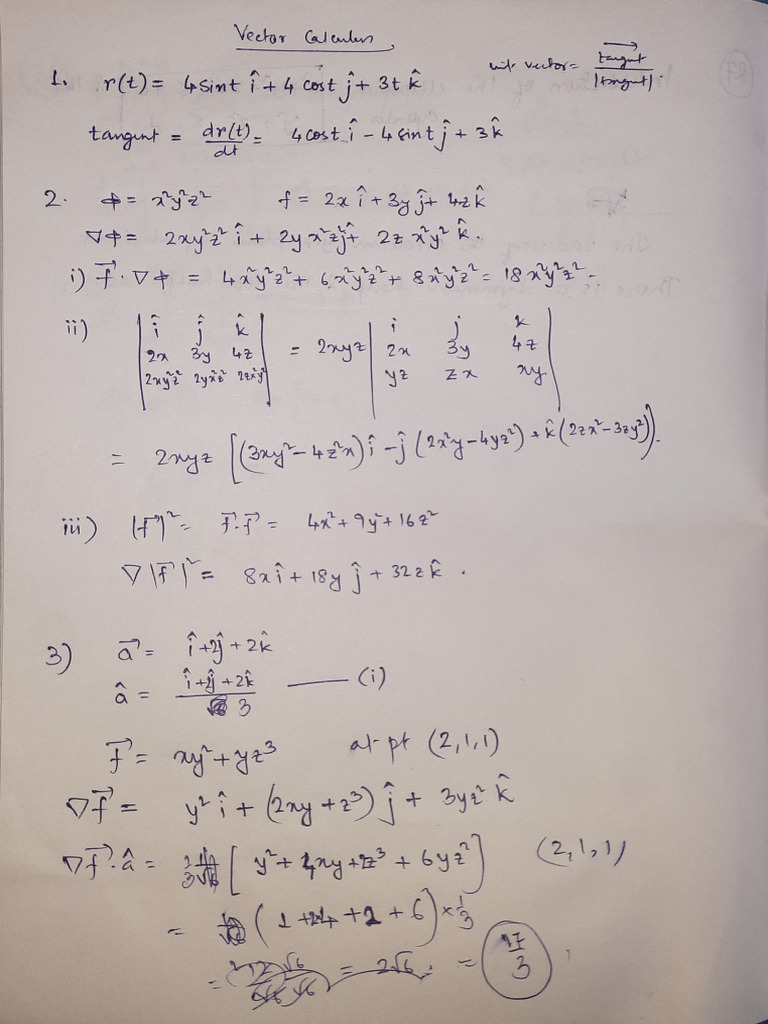 Vector Calculus
unit vector = tangent / |tangent|.
1. r(t) = 4 sint î + 4 cost ĵ + 3t k̂
tangent = dr(t)/dt = 4 cost î - 4 sint ĵ + 3k̂
2. ϕ = x²y²z² f = 2x î + 3y ĵ + 4z k̂
∇ϕ = 2xy²z² î + 2y x²z² ĵ + 2z x²y² k̂.
i) f⃗ · ∇ϕ = 4x²y²z² + 6x²y²z² + 8x²y²z² = 18x²y²z² -
ii) | î ĵ k̂ | = 2xyz | i j k |
| 2x 3y 4z | | 2x 3y 4z |
| 2xy²z² 2yx²z² 2zx²y² | | yz zx xy |
= 2xyz [(3xy² - 4z²x) î - ĵ (2x²y - 4yz²) + k̂ (2zx² - 3zy²)].
iii) |f⃗|² = f⃗·f⃗ = 4x² + 9y² + 16z²
∇|f⃗|² = 8x î + 18y ĵ + 32z k̂ .
3) a⃗ = î + 2ĵ + 2k̂
â = î + 2ĵ + 2k̂ / 3 —— (i)
f⃗ = xy² + yz³ at pt (2,1,1)
∇f⃗ = y² î + (2xy + z³) ĵ + 3yz² k̂
∇f⃗·â = 1/3 [y² + 4xy + 2z³ + 6yz²] (2,1,1)
= (1 + 8 + 2 + 6) × 1/3
= 2√6 = 17/3